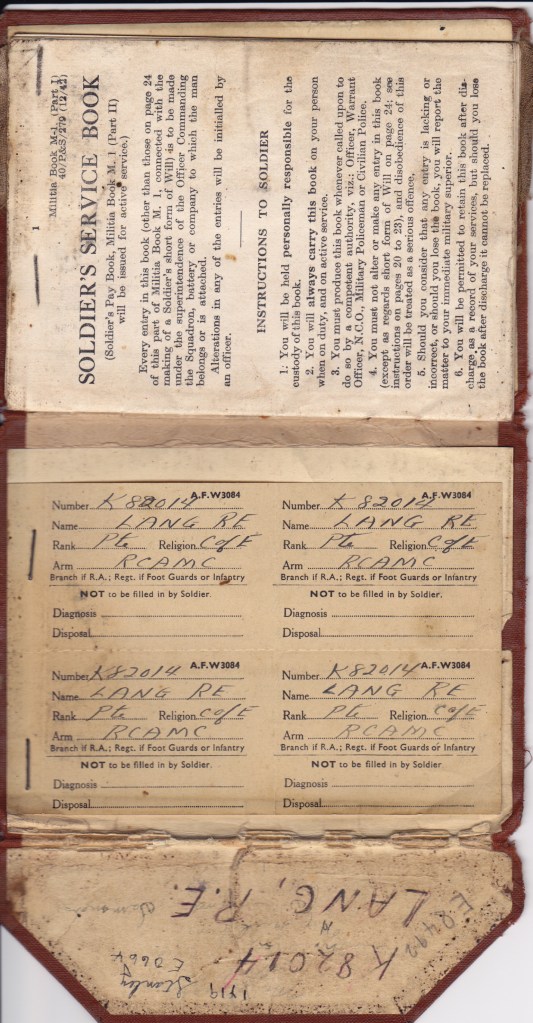 1
Militia Book M-1 (Part I)
40/P&S/279 (12/42)
SOLDIER'S SERVICE BOOK
(Soldier's Pay Book, Militia Book M. 1 (Part II)
will be issued for active service.)
Every entry in this book (other than those on page 24
of this part of Militia Book M. 1, connected with the
making of a Soldier's short form of Will) is to be made
under the superintendence of the Officer Commanding
the Squadron, battery or company to which the man
belongs or is attached.
Alterations in any of the entries will be initialled by
an officer.
INSTRUCTIONS TO SOLDIER
1. You will be held personally responsible for the
custody of this book.
2. You will always carry this book on your person
when on duty, and on active service.
3. You must produce this book whenever called upon to
do so by a competent authority, viz.: Officer, Warrant
Officer, N.C.O., Military Policeman or Civilian Police.
4. You must not alter or make any entry in this book
(except as regards short form of Will on page 24; see
instructions on pages 20 to 23), and disobedience of this
order will be treated as a serious offence.
5. Should you consider that any entry is lacking or
incorrect, or should you lose the book, you will report the
matter to your immediate military superior.
6. You will be permitted to retain this book after dis-
charge as a record of your services, but should you lose
the book after discharge it cannot be replaced.
A.F.W3084
Number K 82014
Name LANG RE
Rank Pte Religion C of E
Arm RCAMC
Branch if R.A.; Regt. if Foot Guards or Infantry
NOT to be filled in by Soldier.
Diagnosis
Disposal
A.F.W3084
Number K 82014
Name LANG RE
Rank Pte Religion C of E
Arm RCAMC
Branch if R.A.; Regt. if Foot Guards or Infantry
NOT to be filled in by Soldier.
Diagnosis
Disposal
A.F.W3084
Number K82014
Name LANG RE
Rank Pte Religion C of E
Arm RCAMC
Branch if R.A.; Regt. if Foot Guards or Infantry
NOT to be filled in by Soldier.
Diagnosis
Disposal
A.F.W3084
Number K82014
Name LANG RE
Rank Pte Religion C of E
Arm RCAMC
Branch if R.A.; Regt. if Foot Guards or Infantry
NOT to be filled in by Soldier.
Diagnosis
Disposal
LANG, R.E.
K 82014
Stanley
1419